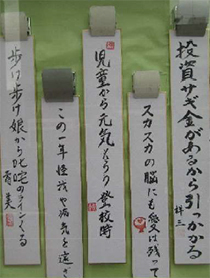 投資サギ金があるから引っかかる
祥三
スカスカの脳にも愛は残って
児童から元気もらう登校時
この一年怪我や病気を遠ざ
歩け歩け娘から叱咤のラインくる